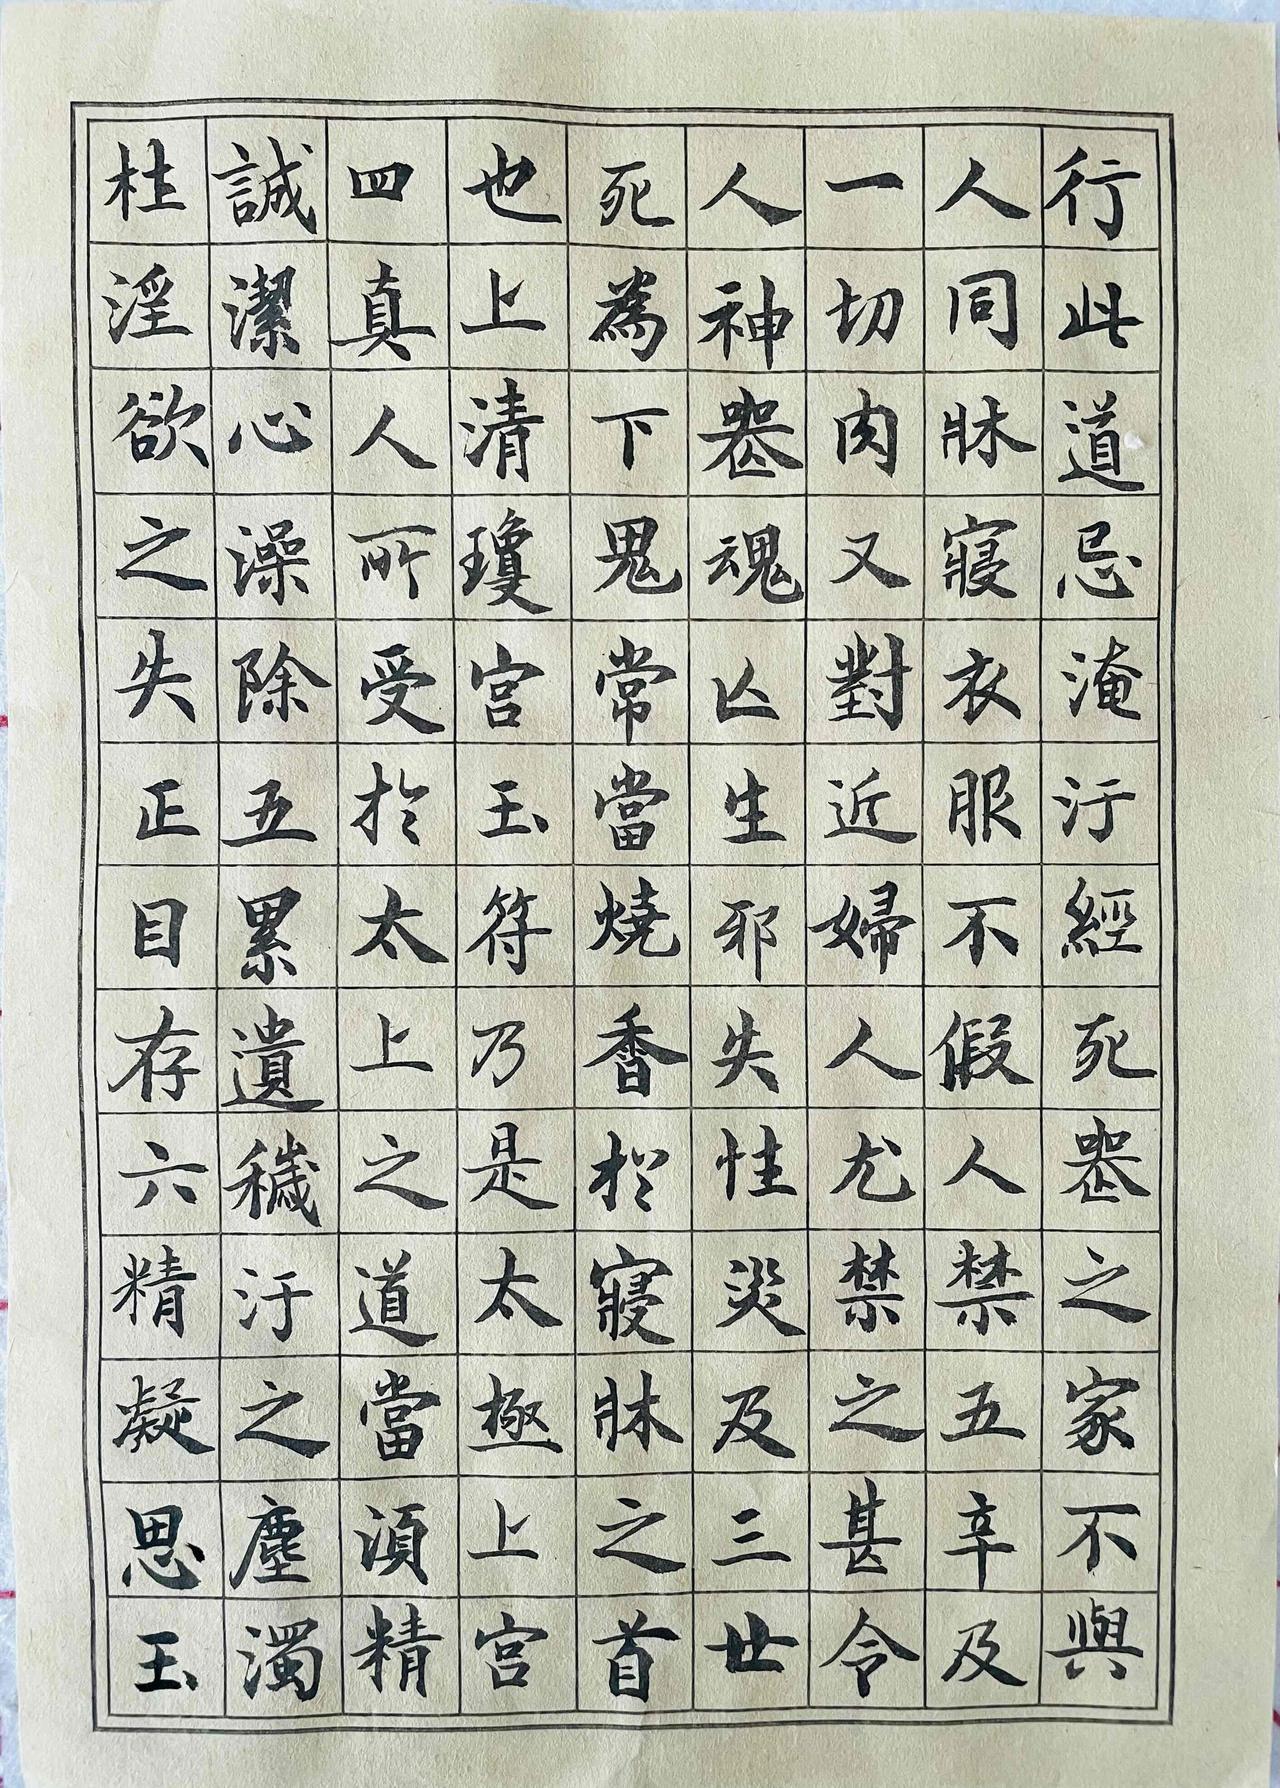 行此道忌淹汙經死喪之家不與
人同牀寢衣服不假人禁五辛及
一切肉又對近婦人尤禁之甚令
人神喪魂亡生邪失性災及三世
死為下鬼常當燒香於寢牀之首
也上清瓊宮玉符乃是太極上宮
四真人所受於太上之道當須精
誠潔心澡除五累遺穢汙之塵濁
杜淫欲之失正目存六精凝思玉